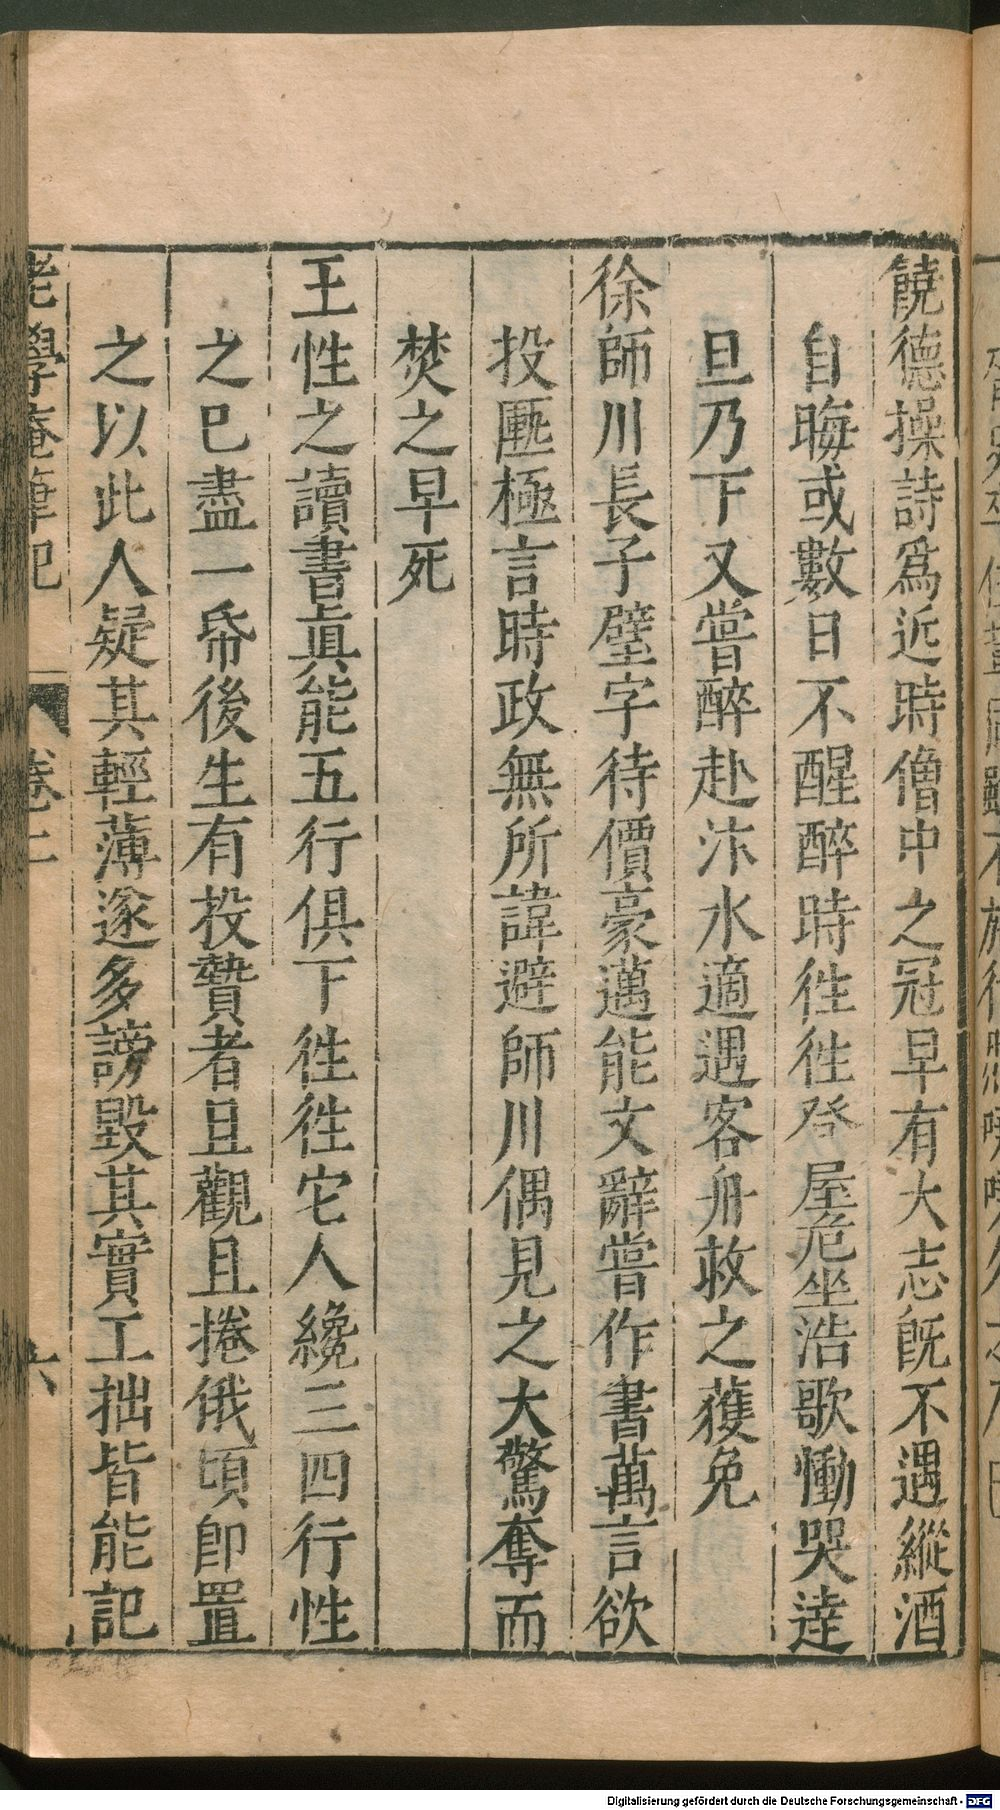 饒德操詩爲近時僧中之冠早有大志旣不遇縱酒
自晦或數日不醒醉時徃徃登屋危坐浩歌慟哭逹
旦乃下又嘗醉赴汴水適遇客舟救之獲免
徐師川長子璧字待價豪邁能文辭嘗作書萬言欲
投匭極言時政無所諱避師川偶見之大驚奪而
焚之早死
王性之讀書眞能五行俱下徃徃它人纔三四行性
之已盡一帋後生有投贄者且觀且捲俄頃卽置
之以此人疑其輕薄遂多謗毀其實工拙皆能記
老學庵筆記 卷二 六
Digitalisierung gefördert durch die Deutsche Forschungsgemeinschaft - DFG